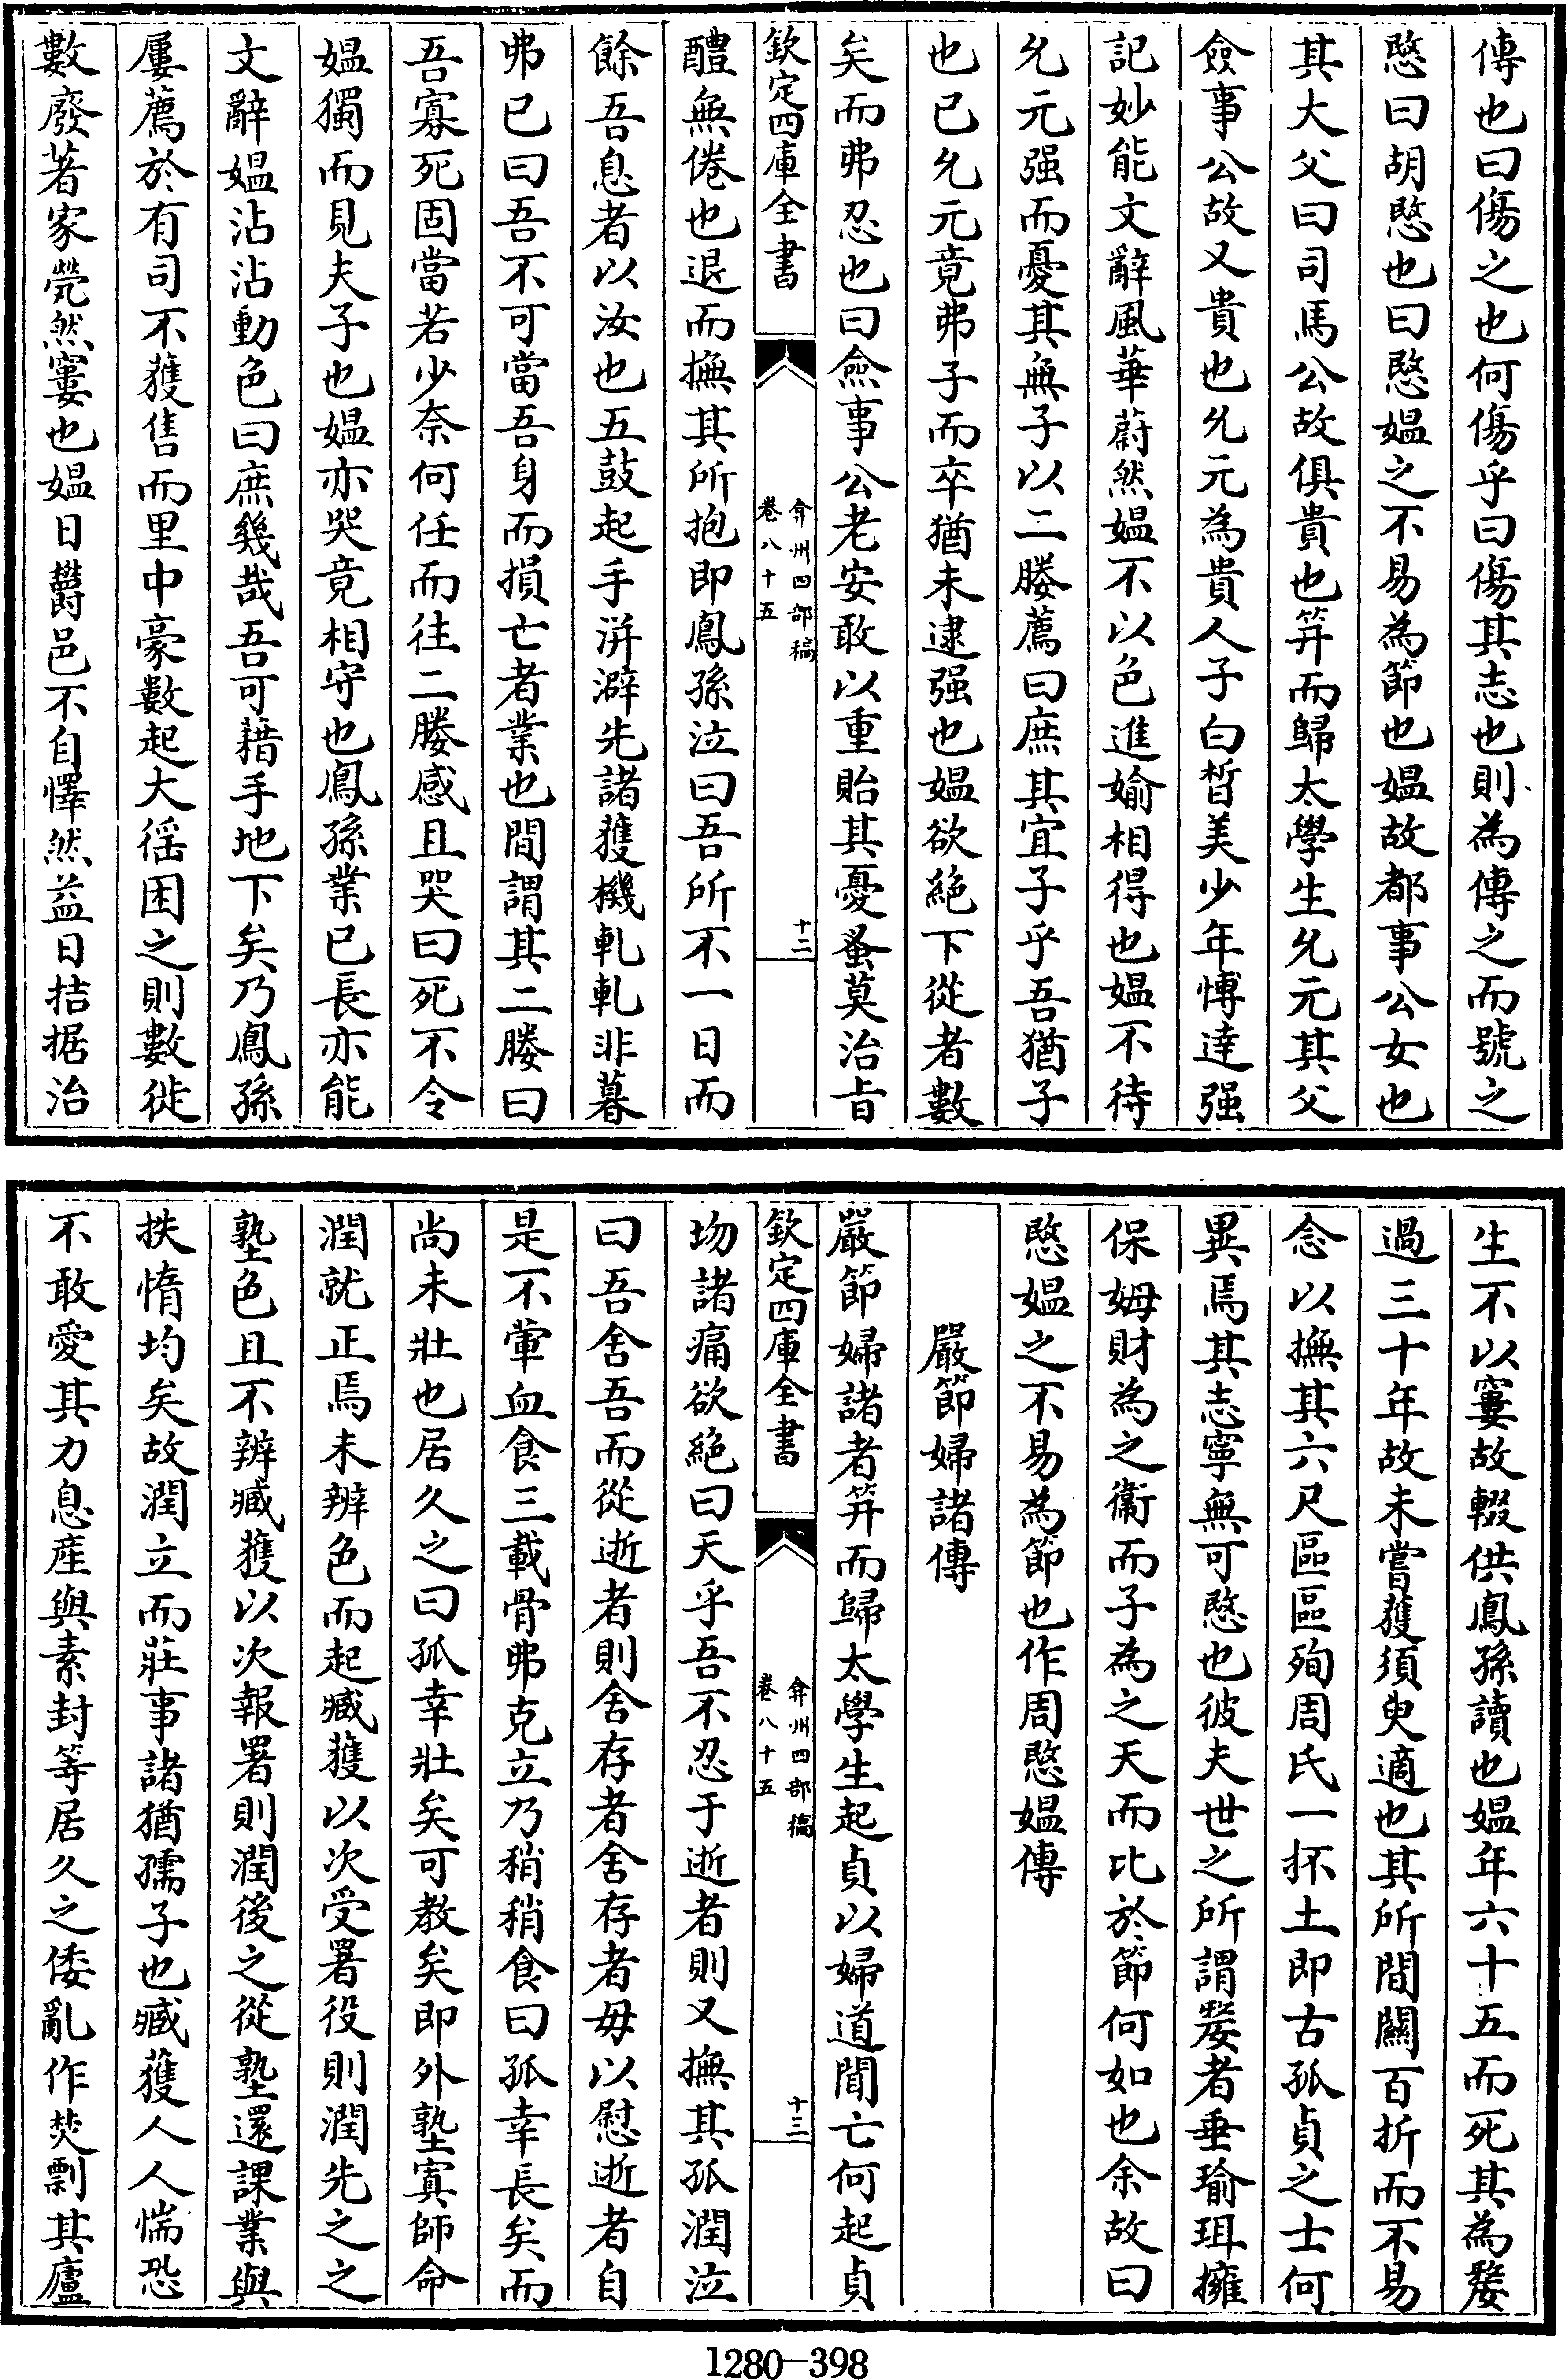 傳也曰傷之也何傷乎曰傷其志也則為傳之而號之
愍曰胡愍也曰愍媼之不易為節也媼故都事公女也
其大父曰司馬公故俱貴也笄而歸太學生允元其父
僉事公故又貴也允元為貴人子白晳美少年愽達强
記妙能文辭風華蔚然媼不以色進婾相得也媼不待
允元强而憂其無子以二媵薦曰庶其宜子乎吾猶子
也已允元竟弗子而卒猶未逮强也媼欲絶下從者數
矣而弗忍也曰僉事公老安敢以重貽其憂蚤莫治旨
欽定四庫全書
弇州四部稿
卷八十五
十二
醴無倦也退而撫其所抱即鳳孫泣曰吾所不一日而
餘吾息者以汝也五鼓起手洴澼先諸獲機軋軋非暮
弗已曰吾不可當吾身而損亡者業也間謂其二媵曰
吾寡死固當若少奈何任而往二媵感且哭曰死不令
媼獨而見夫子也媼亦哭竟相守也鳳孫業已長亦能
文辭媼沾沾動色曰庶幾哉吾可藉手地下矣乃鳳孫
屢薦於有司不獲售而里中豪數起大徭困之則數徙
數廢著家煢然窶也媼日欝邑不自懌然益日拮据治
生不以窶故輟供鳳孫讀也媼年六十五而死其為嫠
過三十年故未嘗獲須臾適也其所間關百折而不易
念以撫其六尺區區殉周氏一抔土即古孤貞之士何
異焉其志寧無可愍也彼夫世之所謂嫠者垂瑜珥擁
保姆財為之衞而子為之天而比於節何如也余故曰
愍媼之不易為節也作周愍媼傳
嚴節婦諸傳
嚴節婦諸者笄而歸太學生起貞以婦道聞亡何起貞
欽定四庫全書
弇州四部稿
卷八十五
十三
歾諸痛欲絶曰天乎吾不忍于逝者則又撫其孤潤泣
曰吾舍吾而從逝者則舍存者舍存者毋以慰逝者自
是不葷血食三載骨弗克立乃稍稍食曰孤幸長矣而
尚未壯也居久之曰孤幸壯矣可教矣即外塾寘師命
潤就正焉未辨色而起臧獲以次受署役則潤先之之
塾色且不辨臧獲以次報署則潤後之從塾還課業與
抶惰均矣故潤立而莊事諸猶孺子也臧獲人人惴恐
不敢愛其力息産與素封等居久之倭亂作焚剽其廬
1280-398